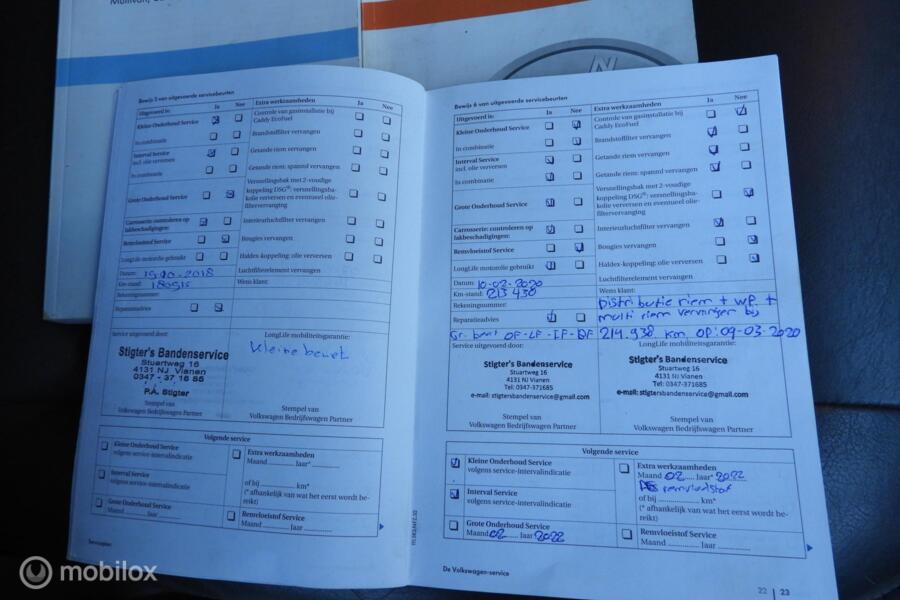 Bewijs 5 van uitgevoerde servicebeurten
Uitgevoerd is: Ja Nee Extra werkzaamheden Ja Nee
Kleine Onderhoud Service
Controle van gasinstallatie bij
Caddy EcoFuel
In combinatie
Brandstoffilter vervangen
Interval Service
incl. olie verversen
Getande riem vervangen
In combinatie
Getande riem: spanrol vervangen
Grote Onderhoud Service
Versnellingsbak met 2-voudige
koppeling DSG®: versnellingsba-
kolie verversen en eventueel olie-
filtervervanging
Carrosserie: controleren op
lakbeschadigingen:
Interieurluchtfilter vervangen
Remvloeistof Service
Bougies vervangen
LongLife motorolie gebruikt
Haldex-koppeling: olie verversen
Luchtfilterelement vervangen
Datum: 15-10-2018
Km-stand: 180515
Wens klant:
Rekeningnummer:
Reparatieadvies
Service uitgevoerd door:
LongLife mobiliteitsgarantie:
Stigter's Bandenservice
Stuartweg 16
4131 NJ Vianen
0347 - 37 16 85
P.A. Stigter
Kleine beurt
Stempel van
Volkswagen Bedrijfswagen Partner
Stempel van
Volkswagen Bedrijfswagen Partner
Volgende service
Kleine Onderhoud Service
volgens service-intervalindicatie
Extra werkzaamheden
Maand ........ Jaar* ............
Interval Service
volgens service-intervalindicatie
of bij .................. km*
(* afhankelijk van wat het eerst wordt be-
reikt)
Grote Onderhoud Service
Maand ........ Jaar ............
Remvloeistof Service
Maand ............ Jaar ............
Serviceplan
Bewijs 6 van uitgevoerde servicebeurten
Uitgevoerd is: Ja Nee Extra werkzaamheden Ja Nee
Kleine Onderhoud Service
Controle van gasinstallatie bij
Caddy EcoFuel
In combinatie
Brandstoffilter vervangen
Interval Service
incl. olie verversen
Getande riem vervangen
In combinatie
Getande riem: spanrol vervangen
Grote Onderhoud Service
Versnellingsbak met 2-voudige
koppeling DSG®: versnellingsba-
kolie verversen en eventueel olie-
filtervervanging
Carrosserie: controleren op
lakbeschadigingen:
Interieurluchtfilter vervangen
Remvloeistof Service
Bougies vervangen
LongLife motorolie gebruikt
Haldex-koppeling: olie verversen
Luchtfilterelement vervangen
Datum: 10-02-2020
Km-stand: 213430
Wens klant:
Rekeningnummer:
Distributie riem + WP. +
multi riem vervangen bij
Reparatieadvies
Gr. beurt OF-LF-IF-BF 214.938 km OP: 09-03-2020
Service uitgevoerd door:
LongLife mobiliteitsgarantie:
Stigter's Bandenservice
Stuartweg 16
4131 NJ Vianen
Tel: 0347-371685
e-mail: stigtersbandenservice@gmail.com
Stigter's Bandenservice
Stuartweg 16
4131 NJ Vianen
Tel: 0347-371685
e-mail: stigtersbandenservice@gmail.com
Stempel van
Volkswagen Bedrijfswagen Partner
Stempel van
Volkswagen Bedrijfswagen Partner
Volgende service
Kleine Onderhoud Service
volgens service-intervalindicatie
Extra werkzaamheden
Maand 02 Jaar* 2022
remvloeistof
Interval Service
volgens service-intervalindicatie
of bij .................. km*
(* afhankelijk van wat het eerst wordt be-
reikt)
Grote Onderhoud Service
Maand 02 Jaar 2022
Remvloeistof Service
Maand ............ Jaar ............
De Volkswagen-service
22 | 23
mobilox